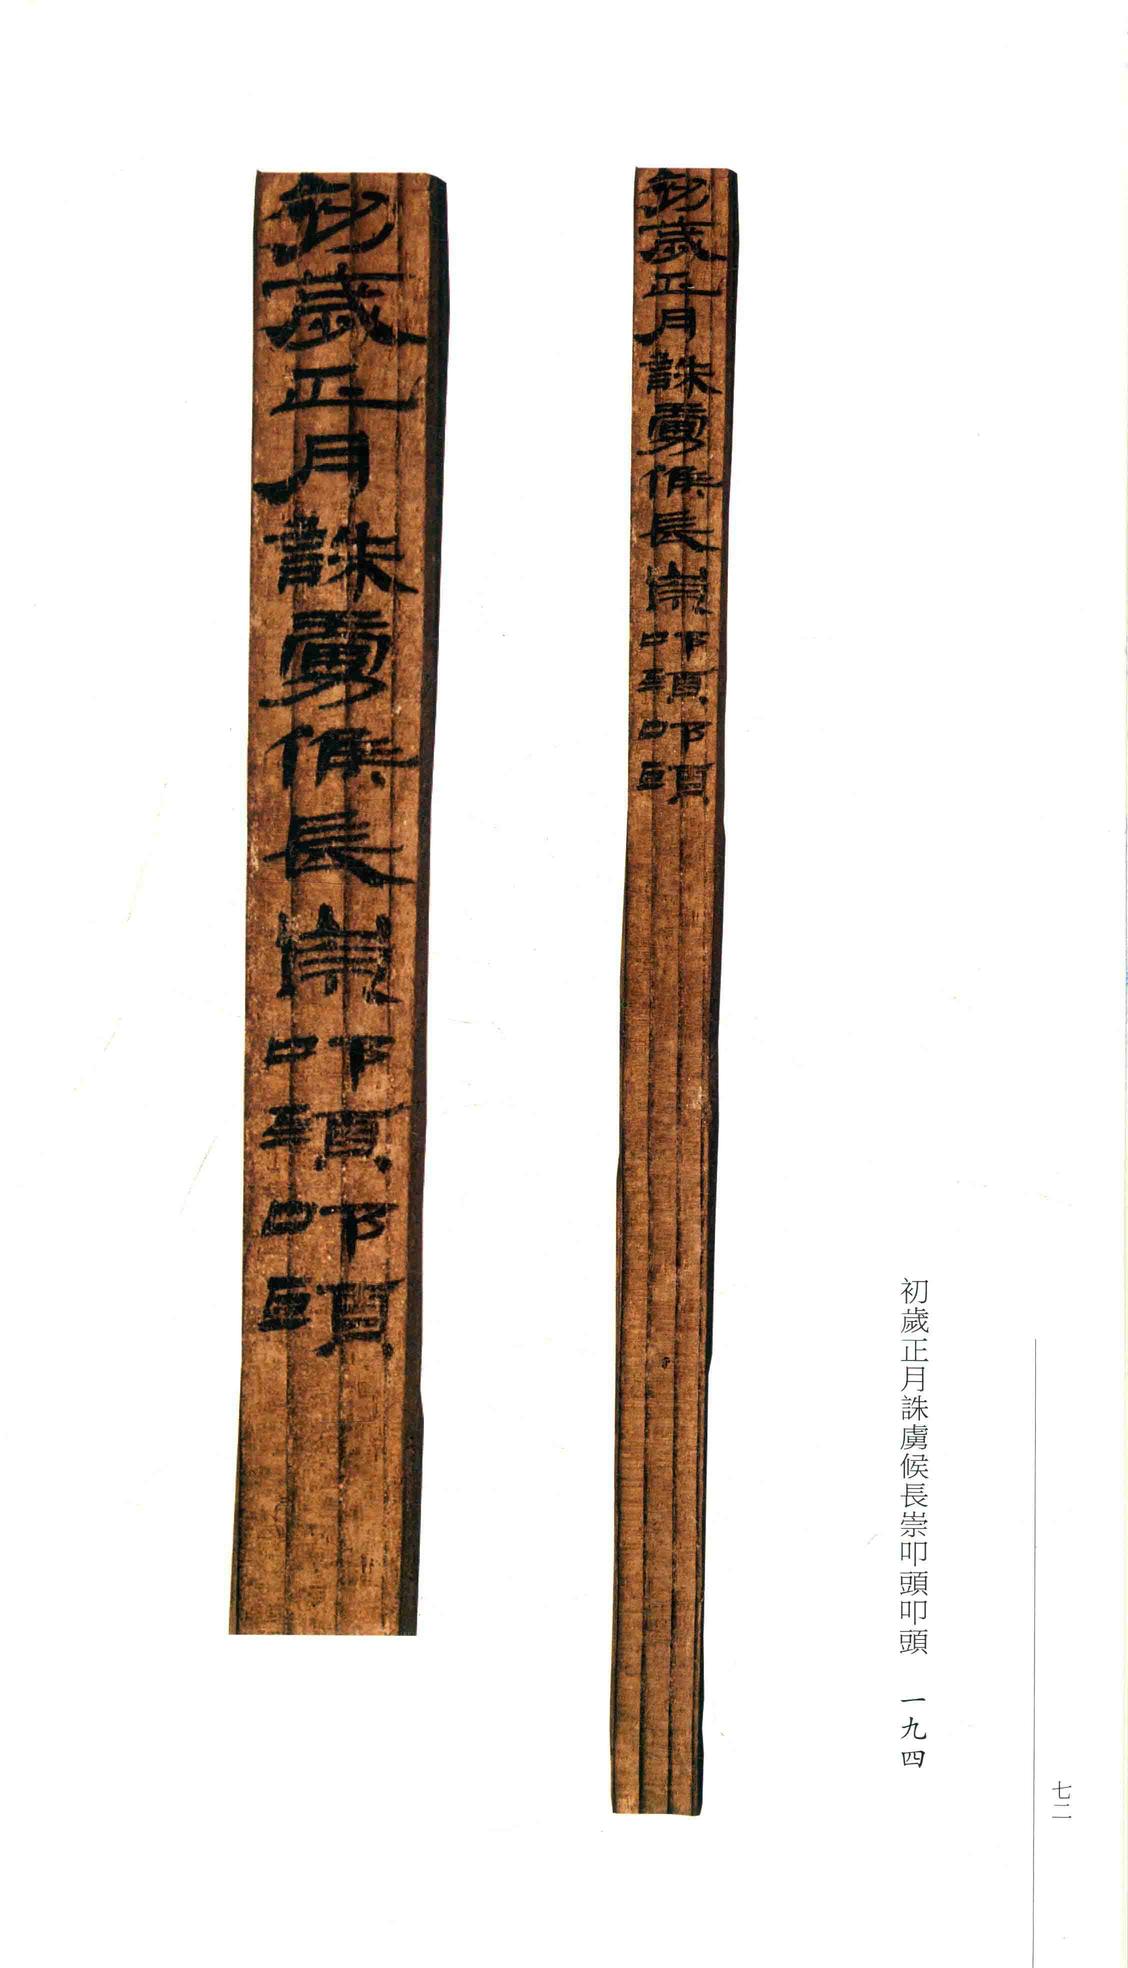 七二
初歲正月誅虜候長崇叩頭叩頭 一九四
初歲正月誅虜候長崇叩頭叩頭
初歲正月誅虜候長崇叩頭叩頭